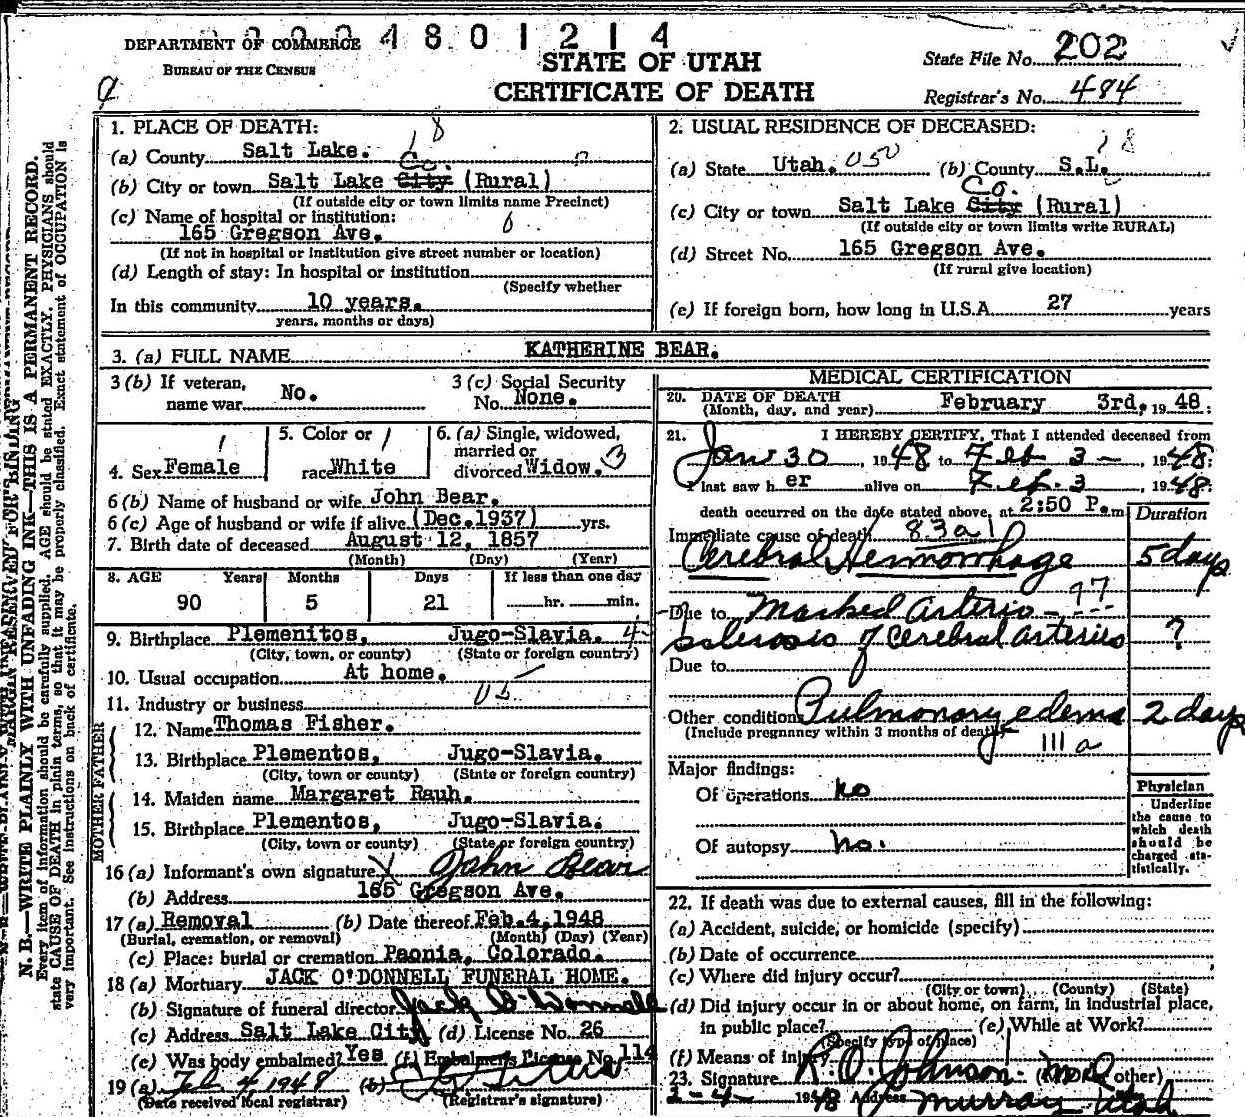 DEPARTMENT OF COMMERCE
BUREAU OF THE CENSUS
4 8 0 1 2 1 4
STATE OF UTAH
CERTIFICATE OF DEATH
State File No. 202
Registrar's No. 484
1. PLACE OF DEATH:
(a) County Salt Lake.
(b) City or town Salt Lake City Co. (Rural)
(If outside city or town limits name Precinct)
(c) Name of hospital or institution:
165 Gregson Ave.
(If not in hospital or institution give street number or location)
(d) Length of stay: In hospital or institution
(Specify whether
In this community 10 years.
years, months or days)
2. USUAL RESIDENCE OF DECEASED:
(a) State Utah. 050 (b) County S.L.
(c) City or town Salt Lake City Co. (Rural)
(If outside city or town limits write RURAL)
(d) Street No. 165 Gregson Ave.
(If rural give location)
(e) If foreign born, how long in U.S.A. 27 years
3. (a) FULL NAME KATHERINE BEAR.
3 (b) If veteran, name war No.
3 (c) Social Security No. None.
4. Sex Female
5. Color or race White
6. (a) Single, widowed, married or divorced Widow. 3
6 (b) Name of husband or wife John Bear.
6 (c) Age of husband or wife if alive (Dec.1937) yrs.
7. Birth date of deceased August 12, 1857
(Month) (Day) (Year)
8. AGE Years Months Days If less than one day
90 5 21 hr. min.
9. Birthplace Plemenitos, Jugo-Slavia. 4
(City, town, or county) (State or foreign country)
10. Usual occupation At home.
11. Industry or business
FATHER
12. Name Thomas Fisher.
13. Birthplace Plementos, Jugo-Slavia.
(City, town or county) (State or foreign country)
MOTHER
14. Maiden name Margaret Rauh.
15. Birthplace Plementos, Jugo-Slavia.
(City, town or county) (State or foreign country)
16 (a) Informant's own signature X John Bear
(b) Address 165 Gregson Ave.
17 (a) Removal (b) Date thereof Feb.4,1948
(Burial, cremation, or removal) (Month) (Day) (Year)
(c) Place: burial or cremation Paonia, Colorado.
18 (a) Mortuary JACK O'DONNELL FUNERAL HOME.
(b) Signature of funeral director Jack O'Donnell
(c) Address Salt Lake City (d) License No. 26
(e) Was body embalmed? Yes (f) Embalmer's License No. 114
19 (a) Feb 4 1948 (b)
(Date received local registrar) (Registrar's signature)
MEDICAL CERTIFICATION
20. DATE OF DEATH
(Month, day, and year) February 3rd, 1948.
21. I HEREBY CERTIFY, That I attended deceased from
Jan 30, 1948 to Feb 3-, 1948;
I last saw h er alive on Feb. 3, 1948;
death occurred on the date stated above, at 2:50 P.m
Duration
Immediate cause of death 83a1
Cerebral Hemorrhage 5 days
Due to Marked Arterio- 97
sclerosis of Cerebral arteries ?
Due to
Other conditions Pulmonary edema 2 days
(Include pregnancy within 3 months of death)
111a
Major findings:
Of operations no
Of autopsy no.
Physician
Underline
the cause to
which death
should be
charged sta-
tistically.
22. If death was due to external causes, fill in the following:
(a) Accident, suicide, or homicide (specify)
(b) Date of occurrence
(c) Where did injury occur?
(City or town) (County) (State)
(d) Did injury occur in or about home, on farm, in industrial place,
in public place? (e) While at Work?
(Specify type of place)
(f) Means of injury
23. Signature R. O. Johnson M.D. (M.D. or other)
2-4- 1948 Address Murray Utah
MARGIN RESERVED FOR BINDING
N. B.—WRITE PLAINLY WITH UNFADING INK—THIS IS A PERMANENT RECORD.
Every item of information should be carefully supplied. AGE should be stated EXACTLY. PHYSICIANS should
state CAUSE OF DEATH in plain terms, so that it may be properly classified. Exact statement of OCCUPATION is
very important. See instructions on back of certificate.